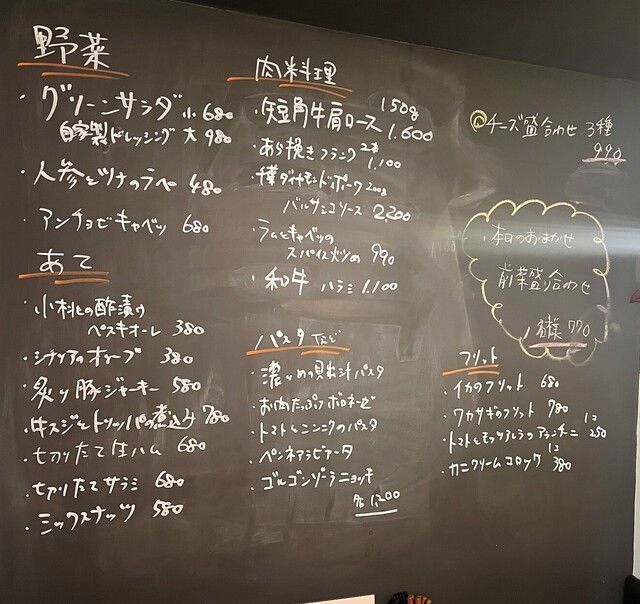 野菜
・グリーンサラダ 小 680
自家製ドレッシング 大 980
・人参とツナのラペ 480
・アンチョビキャベツ 680
あて
・小桃の酢漬け
ペスキオーレ 380
・シチリアのオリーブ 380
・炙り豚ジャーキー 580
・牛スジとトリッパの煮込み 780
・切りたて生ハム 680
・切りたてサラミ 680
・ミックスナッツ 580
肉料理
・短角牛肩ロース 150g 1,600
・あら挽きフランク 2本 1,100
ダイヤモンドポーク 200g
バルサミコソース 2,200
・ラムとキャベツの
スパイス炒め 990
・和牛 ハラミ 1,100
パスタなど
・濃いめの貝汁パスタ
・お肉たっぷりボロネーゼ
・トマトとニンニクのパスタ
・ペンネアラビアータ
・ゴルゴンゾーラニョッキ
各 1,200
◎チーズ盛合わせ 3種
990
本日のおまかせ
前菜盛合わせ
1名様 770
フリット
・イカのフリット 680
・ワカサギのフリット 780
・トマトとモッツァレラのアランチーニ 1コ 250
・カニクリームコロッケ 1コ 380